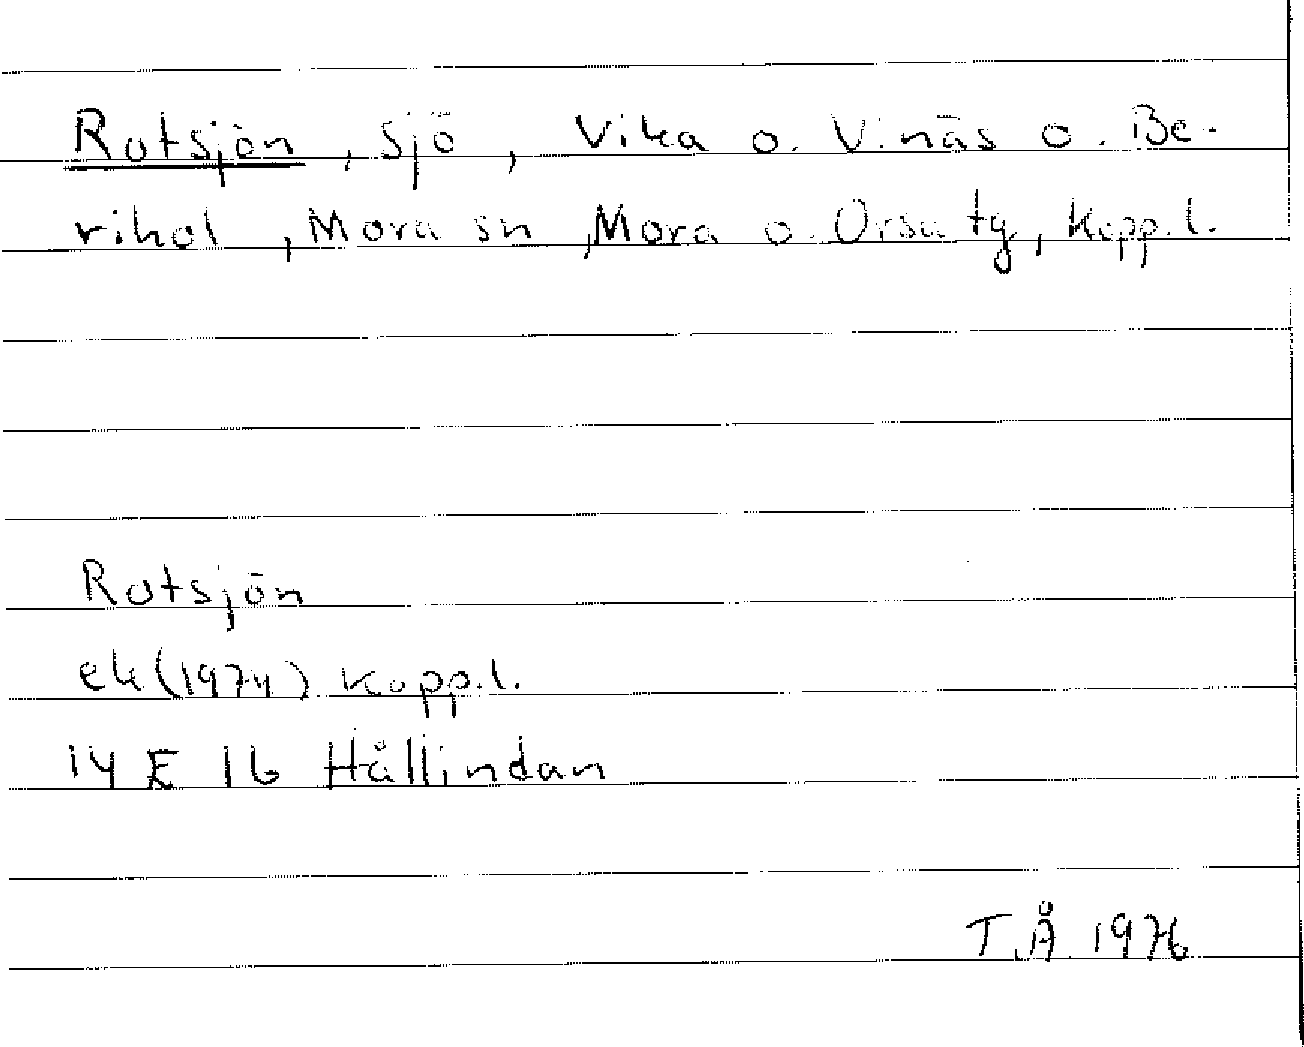 Rotsjön, sjö, Vika o. Vinäs o. Be-
rihol, Mora sn, Mora o. Orsa tg, Kopp.l.
Rotsjön
ek (1974) Kopp.l.
14 E 1b Hållindan
T.Å. 1976